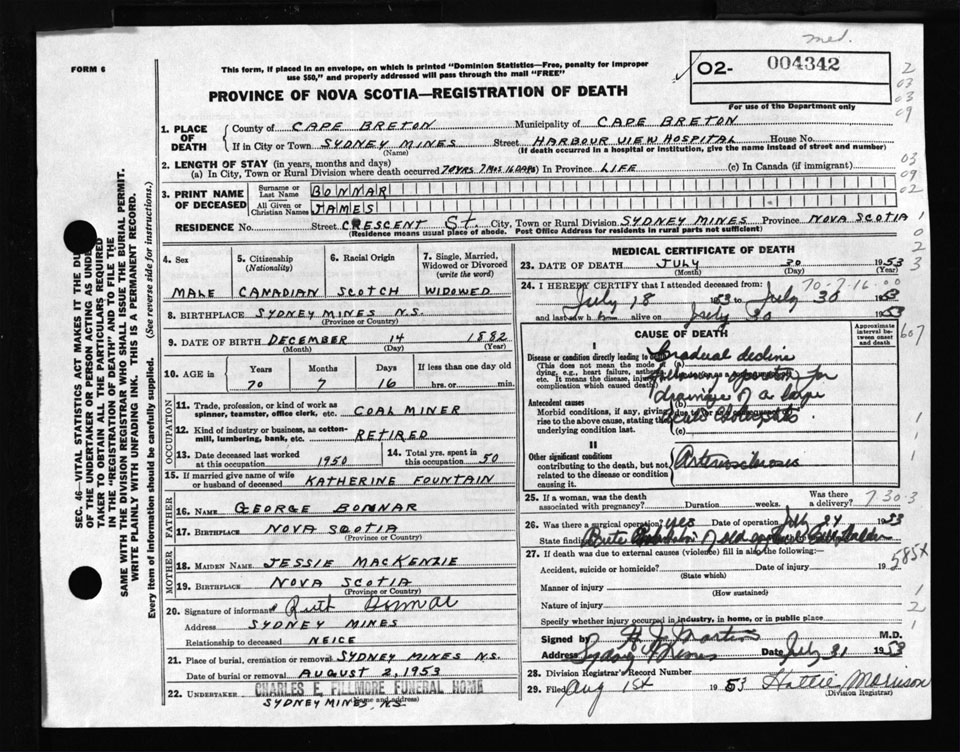 med.
FORM 6
This form, if placed in an envelope, on which is printed "Dominion Statistics—Free, penalty for improper
use $50," and properly addressed will pass through the mail "FREE"
02- 004342
For use of the Department only
PROVINCE OF NOVA SCOTIA—REGISTRATION OF DEATH
SEC. 46—VITAL STATISTICS ACT MAKES IT THE DU
OF THE UNDERTAKER OR PERSON ACTING AS UND
TAKER TO OBTAIN ALL THE PARTICULARS REQUIRED
IN THE "REGISTRATION OF DEATH" AND TO FILE THE
SAME WITH THE DIVISION REGISTRAR WHO SHALL ISSUE THE BURIAL PERMIT.
WRITE PLAINLY WITH UNFADING INK. THIS IS A PERMANENT RECORD.
Every item of information should be carefully supplied. (See reverse side for instructions.)
1. PLACE OF DEATH
County of CAPE BRETON Municipality of CAPE BRETON
If in City or Town SYDNEY MINES Street HARBOUR VIEW HOSPITAL House No.
(Name) (If death occurred in a hospital or institution, give the name instead of street and number)
2. LENGTH OF STAY (in years, months and days)
(a) In City, Town or Rural Division where death occurred 70YRS 7 MOS 16 DAYS In Province LIFE (c) In Canada (if immigrant)
3. PRINT NAME OF DECEASED
Surname or Last Name BONNAR
All Given or Christian Names JAMES
RESIDENCE No. Street CRESCENT ST. City, Town or Rural Division SYDNEY MINES Province NOVA SCOTIA
(Residence means usual place of abode. Post Office Address for residents in rural parts not sufficient)
4. Sex 5. Citizenship (Nationality) 6. Racial Origin 7. Single, Married, Widowed or Divorced (write the word)
MALE CANADIAN SCOTCH WIDOWED
8. BIRTHPLACE SYDNEY MINES N.S.
(Province or Country)
9. DATE OF BIRTH DECEMBER 14 1882
(Month) (Day) (Year)
10. AGE in Years Months Days If less than one day old
70 7 16 hrs. or min.
OCCUPATION
11. Trade, profession, or kind of work as spinner, teamster, office clerk, etc. COAL MINER
12. Kind of industry or business, as cotton-mill, lumbering, bank, etc. RETIRED
13. Date deceased last worked at this occupation 1950 14. Total yrs. spent in this occupation 50
15. If married give name of wife or husband of deceased KATHERINE FOUNTAIN
FATHER
16. NAME GEORGE BONNAR
17. BIRTHPLACE NOVA SCOTIA
(Province or Country)
MOTHER
18. MAIDEN NAME JESSIE MACKENZIE
19. BIRTHPLACE NOVA SCOTIA
(Province or Country)
20. Signature of informant Ruth Bonnar
Address SYDNEY MINES
Relationship to deceased NEICE
21. Place of burial, cremation or removal SYDNEY MINES N.S.
Date of burial or removal AUGUST 2, 1953
22. UNDERTAKER CHARLES E. FILLMORE FUNERAL HOME
(Name and address)
SYDNEY MINES, N.S.
MEDICAL CERTIFICATE OF DEATH
23. DATE OF DEATH JULY 30 1953
(Month) (Day) (Year)
70-7-16-00
24. I HEREBY CERTIFY that I attended deceased from:
July 18 1953 to July 30 1953
and last saw h alive on July 30 1953
CAUSE OF DEATH
Approximate interval between onset and death
I
Disease or condition directly leading to
(This does not mean the mode of dying, e.g., heart failure, asthenia, etc. It means the disease, injury, complication which caused death)
Gradual decline
following operation for
drainage of a large
Antecedent causes
Morbid conditions, if any, giving rise to the above cause, stating underlying condition last.
(b)
due to
(c)
II
Other significant conditions
contributing to the death, but not related to the disease or condition causing it.
Arteriosclerosis
25. If a woman, was the death associated with pregnancy? Duration weeks. Was there a delivery?
7303
26. Was there a surgical operation? yes Date of operation July 24 1953
State finding
27. If death was due to external causes (violence) fill in also the following:—
Accident, suicide or homicide? Date of injury 19
(State which)
585X
Manner of injury
(How sustained)
Nature of injury
Specify whether injury occurred in industry, in home, or in public place
Signed by H. J. Martin M.D.
Address Sydney Mines Date July 31 1953
28. Division Registrar's Record Number
29. Filed Aug 1st 1953 Hattie Morrison
(Division Registrar)
2
03
03
09
03
09
02
1
0
2
3
607
1
1
1
1
2
1